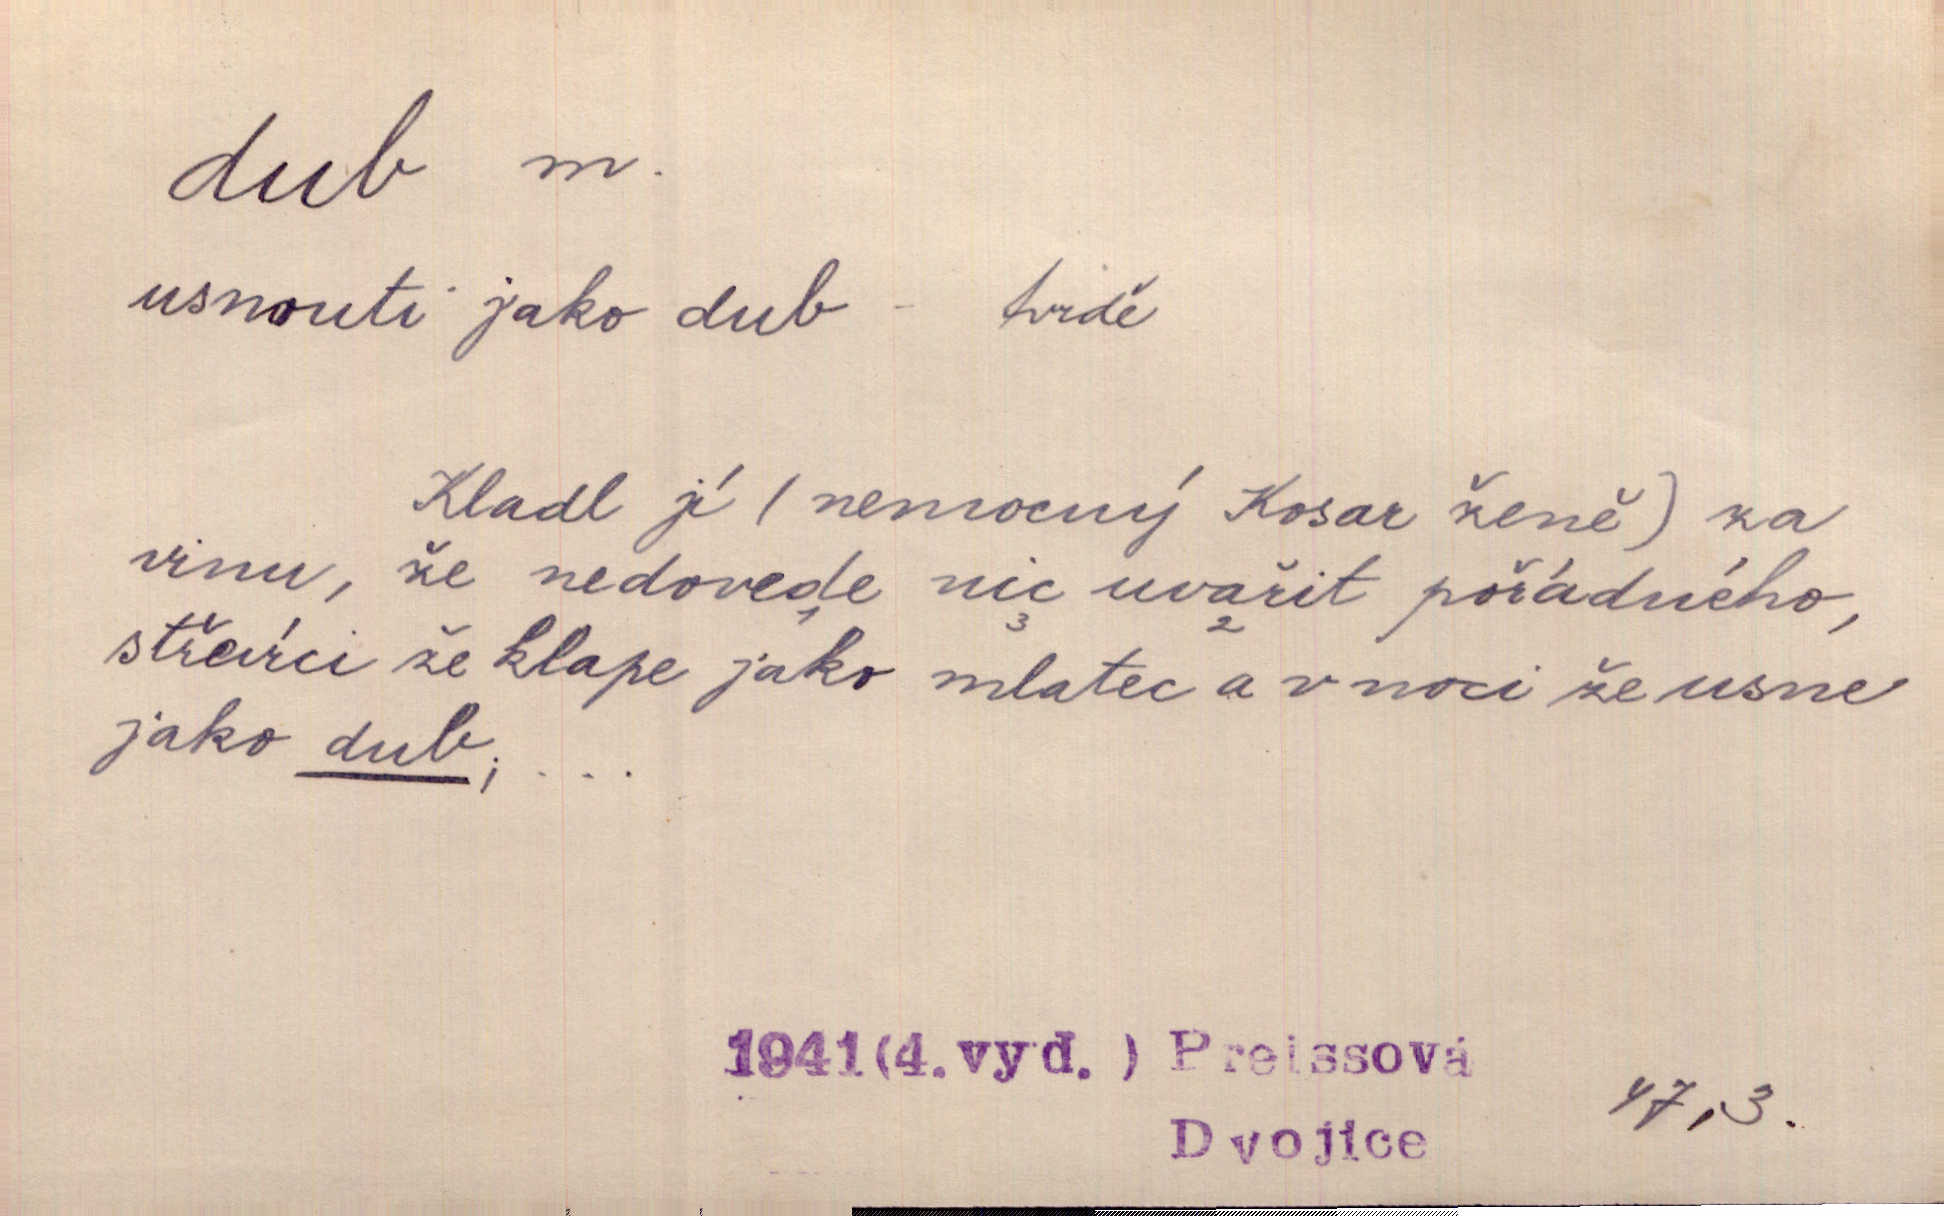 dub m.
usnouti jako dub - tvrdě
Kladl jí (nemocný Kosar ženě) za
vinu, že nedovede nic uvařit pořádného,
1 3 2
střevíci že klape jako mlatec a v noci že usne
jako dub; ...
1941(4.vyd.) Preissová
47,3.
Dvojice